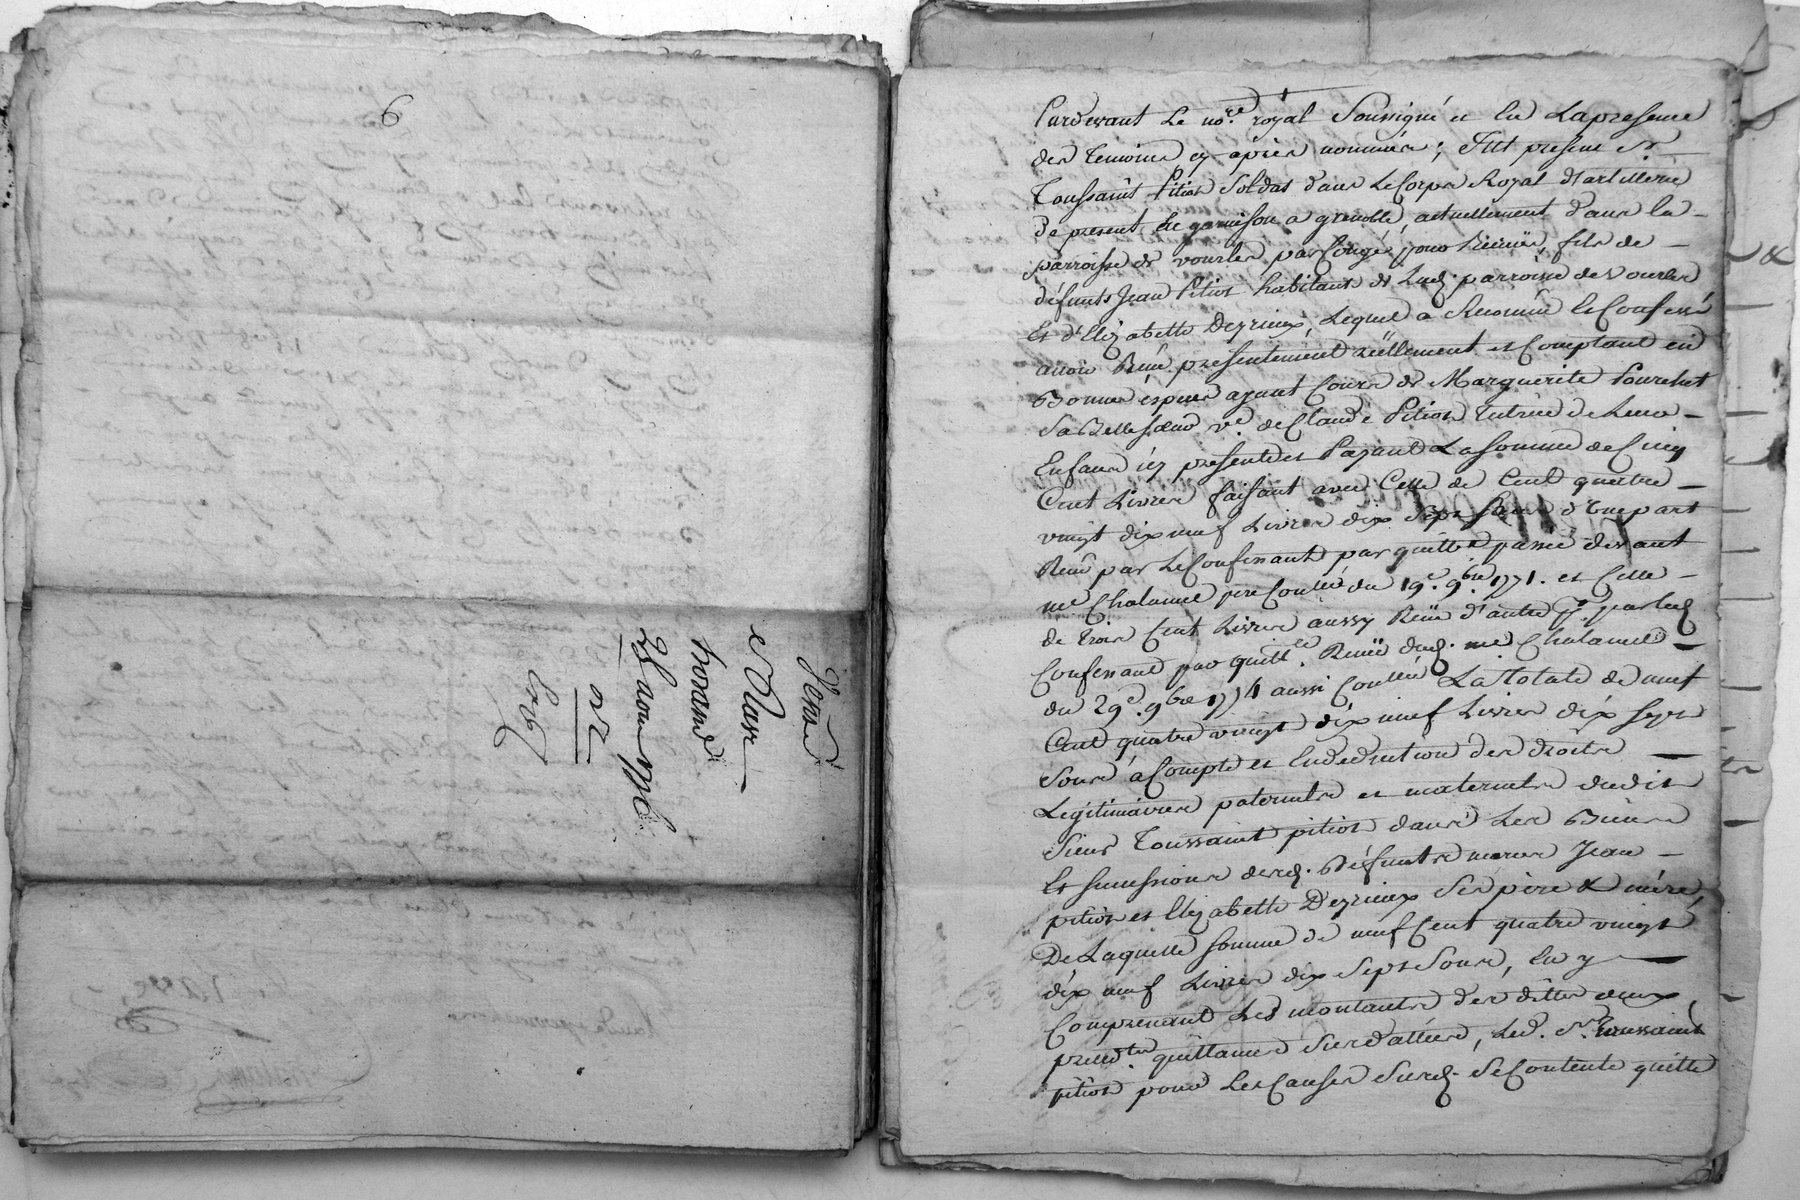 6
Pardevant Le no.re royal Soussigné et En La presence
des temoins cy après nommés; fut present Sr
Toussaint Pitiot Soldat dans Le Corps Royal d'artillerie
de present en garnison a grenoble, actuellement dans la
parroisse de vourles par Congé, fils de
défunts Jean Pitiot habitant de Lad. parroisse de vourles
Et d'Elizabeth Dezrieux, Lequel a Reconnu et Confessé
avoir Reçu presentement réellement et Comptant en
Bonnes espèces ayant Cours de Marguerite Pourchet
Sa Belle sœur v.e de Claude Pitiot tutrice de Leurs
Enfans icy presente et Payant La somme de Cinq
Cent Livres faisant avec Celle de Cent quatre
vingt dix neuf Livres dix Sept Sous d'Une part
Reçu par Le Confessant par quitt.e passée devant
me Chalamel pre Contée du 19.e 9bre 1771. et Celle
de trois Cent Livres aussy Reçue d'autre p. par led.
Confessant par quitt.ce Reçue dud. me Chalamel
du 29.e 9bre 1774 aussi Contée La totale de neuf
Cent quatre vingt dix neuf Livres dix Sept
Sous à Compte et En deduction des droits
Legitimaires paternels et maternels dudit
Sieur Toussaint pitiot dans Les Biens
Et successions desd. Défunts Jean
pitiot et Elizabeth Dezrieux Ses père & mère
De Laquelle somme de neuf Cent quatre vingt
dix neuf Livres dix Sept Sous, En y
Comprenant Les montants des dittes deux
quittances Sus dattées, Led. Sr. Toussaint
pitiot pour Les Causes Susd. Se Contente quitte